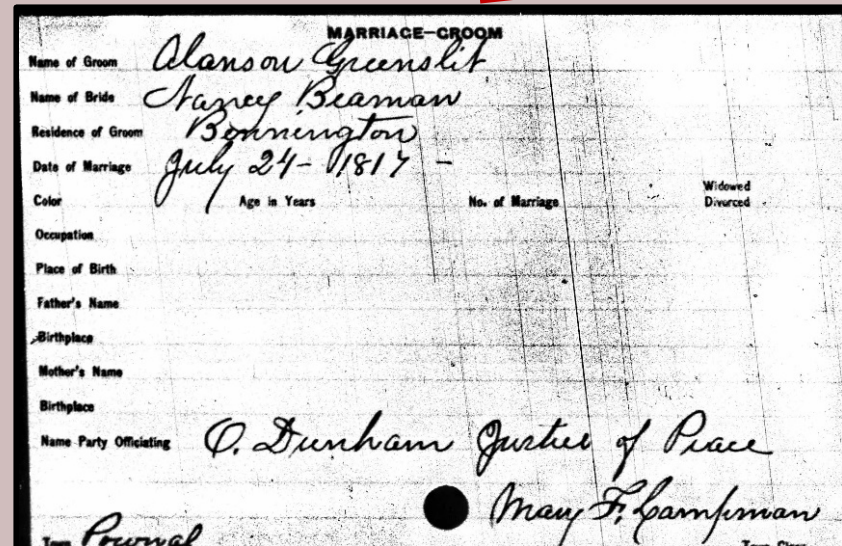 MARRIAGE-GROOM
Name of Groom Alanson Greenslit
Name of Bride Nancy Beaman
Residence of Groom Bennington
Date of Marriage July 24- 1817 -
Color Age in Years No. of Marriage Widowed
Divorced
Occupation
Place of Birth
Father's Name
Birthplace
Mother's Name
Birthplace
Name Party Officiating O. Dunham Justice of Peace
Mary F. Campman
Town Pownal Town Clerk